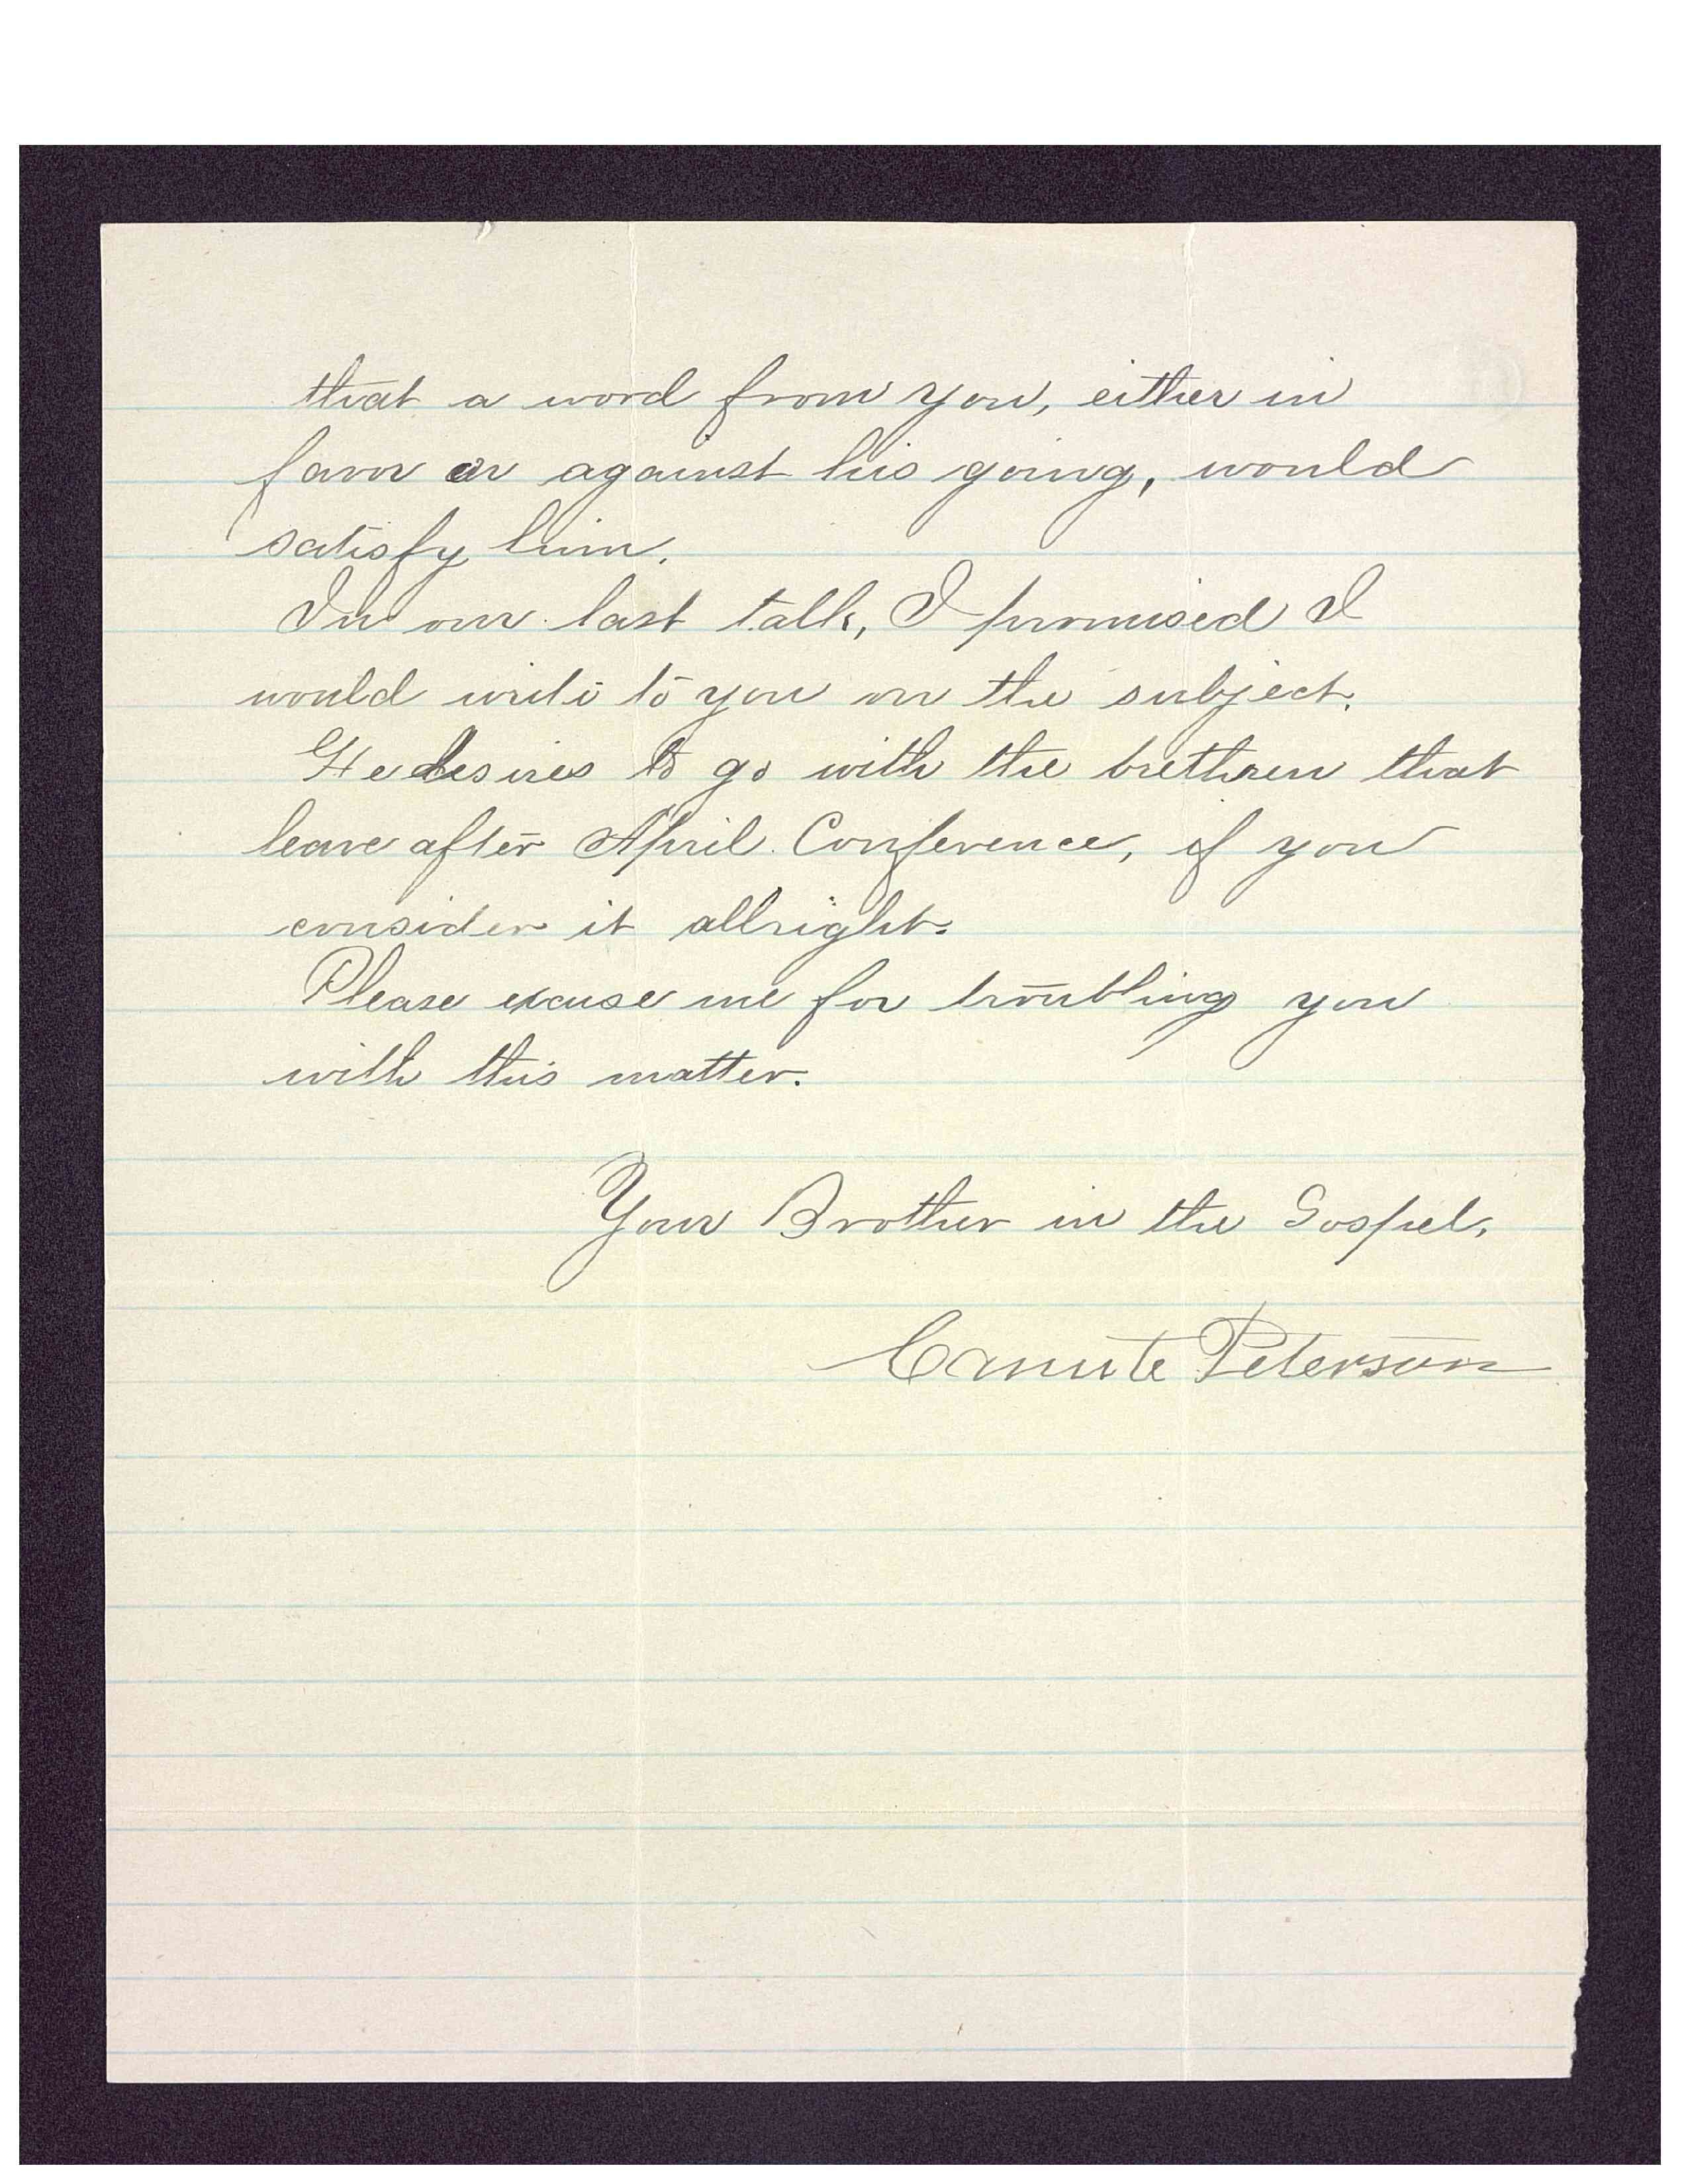 that a word from you, either in
favor or against his going, would
satisfy him.
In our last talk, I promised I
would write to you on the subject.
He desires to go with the brethren that
leave after April Conference, if you
consider it allright.
Please excuse me for troubling you
with this matter.
Your Brother in the Gospel,
Canute Peterson